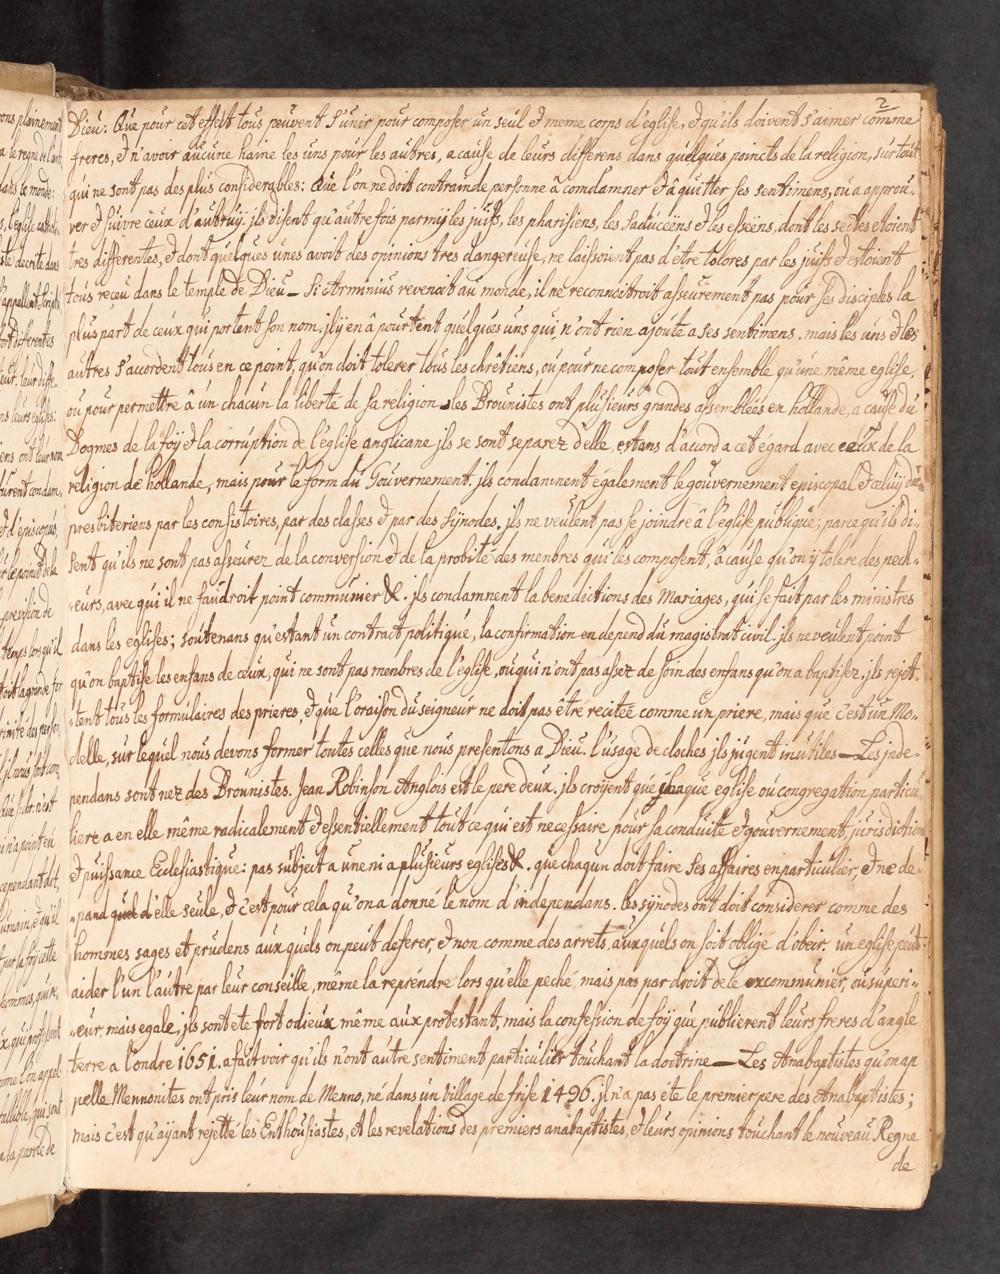 2
Dieu: Que pour cet effect tous peuvent s'unir pour composer un seul et meme corps d'eglise, et qu'ils doivent s'aimer comme
freres, et n'avoir aucune haine les uns pour les autres, a cause de leurs differens dans quelques poincts de la religion, sur tout
qui ne sont pas des plus considerables: Que l'on ne doit contraindre personne â comdamner et â quitter ses sentimens, ou a approu-
ver et suivre ceux d'autruÿ. jls disent qu'autre fois parmÿ les juifs, les pharisiens, les saducéens et les esséens, dont les sectes etoient
tres differentes, et dont quelques unes avoit des opinions tres dangereuse, ne laissoient pas d'etre tolores par les juifs et estoient
tous reçeu dans le temple de Dieu — Si Arminius revenoit au monde, il ne reconnoitroit asseurement pas pour ses disciples la
plus part de ceux qui portent son nom. jlÿ en â pourtent quelques uns qui n'ont rien ajoute a ses sentimens. mais les uns et les
autres s'accordent tous en ce point, qu'on doit tolerer tous les chrêtiens, ou pour ne composer tout ensemble qu'une même eglise,
ou pour permettre â un chacun la liberté de sa religion — les Brounistes ont plusieurs grandes assemblées en hollande, a cause du
Dogmes de la foÿ et la corruption de l'église anglicane jls se sont separez d'elle, estans d'accord a cet égard avec ceux de la
religion de hollande, mais pour le form du Gouvernement. jls condamnent également le gouvernement episcopal et celuiÿ des
presbiteriens par les consistoires, par des classes et par des Sÿnodes. jls ne veulent pas se joindre â l'eglise publique; parce qu'ils di-
sent qu'ils ne sont pas asseurez de la conversion et de la probité des menbres qui les composent, â cause qu'on ÿ tolere des pech-
-eurs, avec qui il ne faudroit point communier &. jls condamnent la benedictions des Mariages, qui se fait par les ministres
dans les eglises; soutenans qu'estant un contract politique, la confirmation en depend du magistrat civil. jls ne veulent point
qu'on baptise les enfans de ceux, qui ne sont pas menbres de l'église, ou qui n'ont pas assez de soin des enfans qu'on a baptisez. jls rejet-
-tent tous les formulaires des prieres, et que l'oraison du seigneur ne doit pas etre recitée comme un priere, mais que c'est un Mo-
delle, sur lequel nous devons former toutes celles que nous presentons a Dieu. l'usage de cloches jls jugent inutiles — Les jnde-
pendans sont nez des Brounistes. Jean Robinson Anglois est le pere deux. jls croÿent que chaque eglise ou congregation particu-
liere a en elle même radicalement et essentiellement tout ce qui est necessaire pour sa conduite et gouvernement, jurisdiction
et puissance Ecclesiastique: pas subject a une ni a plusieurs eglises &. que chaqun doit faire ses affaires en particulier, et ne de-
-pand d'elle seule, et c'est pour cela qu'on a donné le nom d'independans. les sÿnodes ont doit considerer comme des
hommes sages et prudens auxquels on peut deferer, et non comme des arrets, auxquels on soit obligé d'obeir. un eglise peut
aider l'un l'autre par leur conseille, même la reprendre lors qu'elle peché, mais pas par droit de le excommunier, ou superi-
-eur, mais egale, jls sont ete fort odieux même aux protestant, mais la confession de foÿ que publierent leurs freres d'angle
terre a londre 1651. a fait voir qu'ils n'ont autre sentiment particulier touchant la doctrine — Les Anabaptistes qu'on ap
pelle Mennonites ont pris leur nom de Menno, né dans un village de frise 1496. jl n'a pas eté le premier pere des Anabaptistes;
mais c'est qu'aÿant rejetté les Enthousiastes, et les revelations des premiers anabaptistes, et leurs opinions touchant le nouveau Regne
de